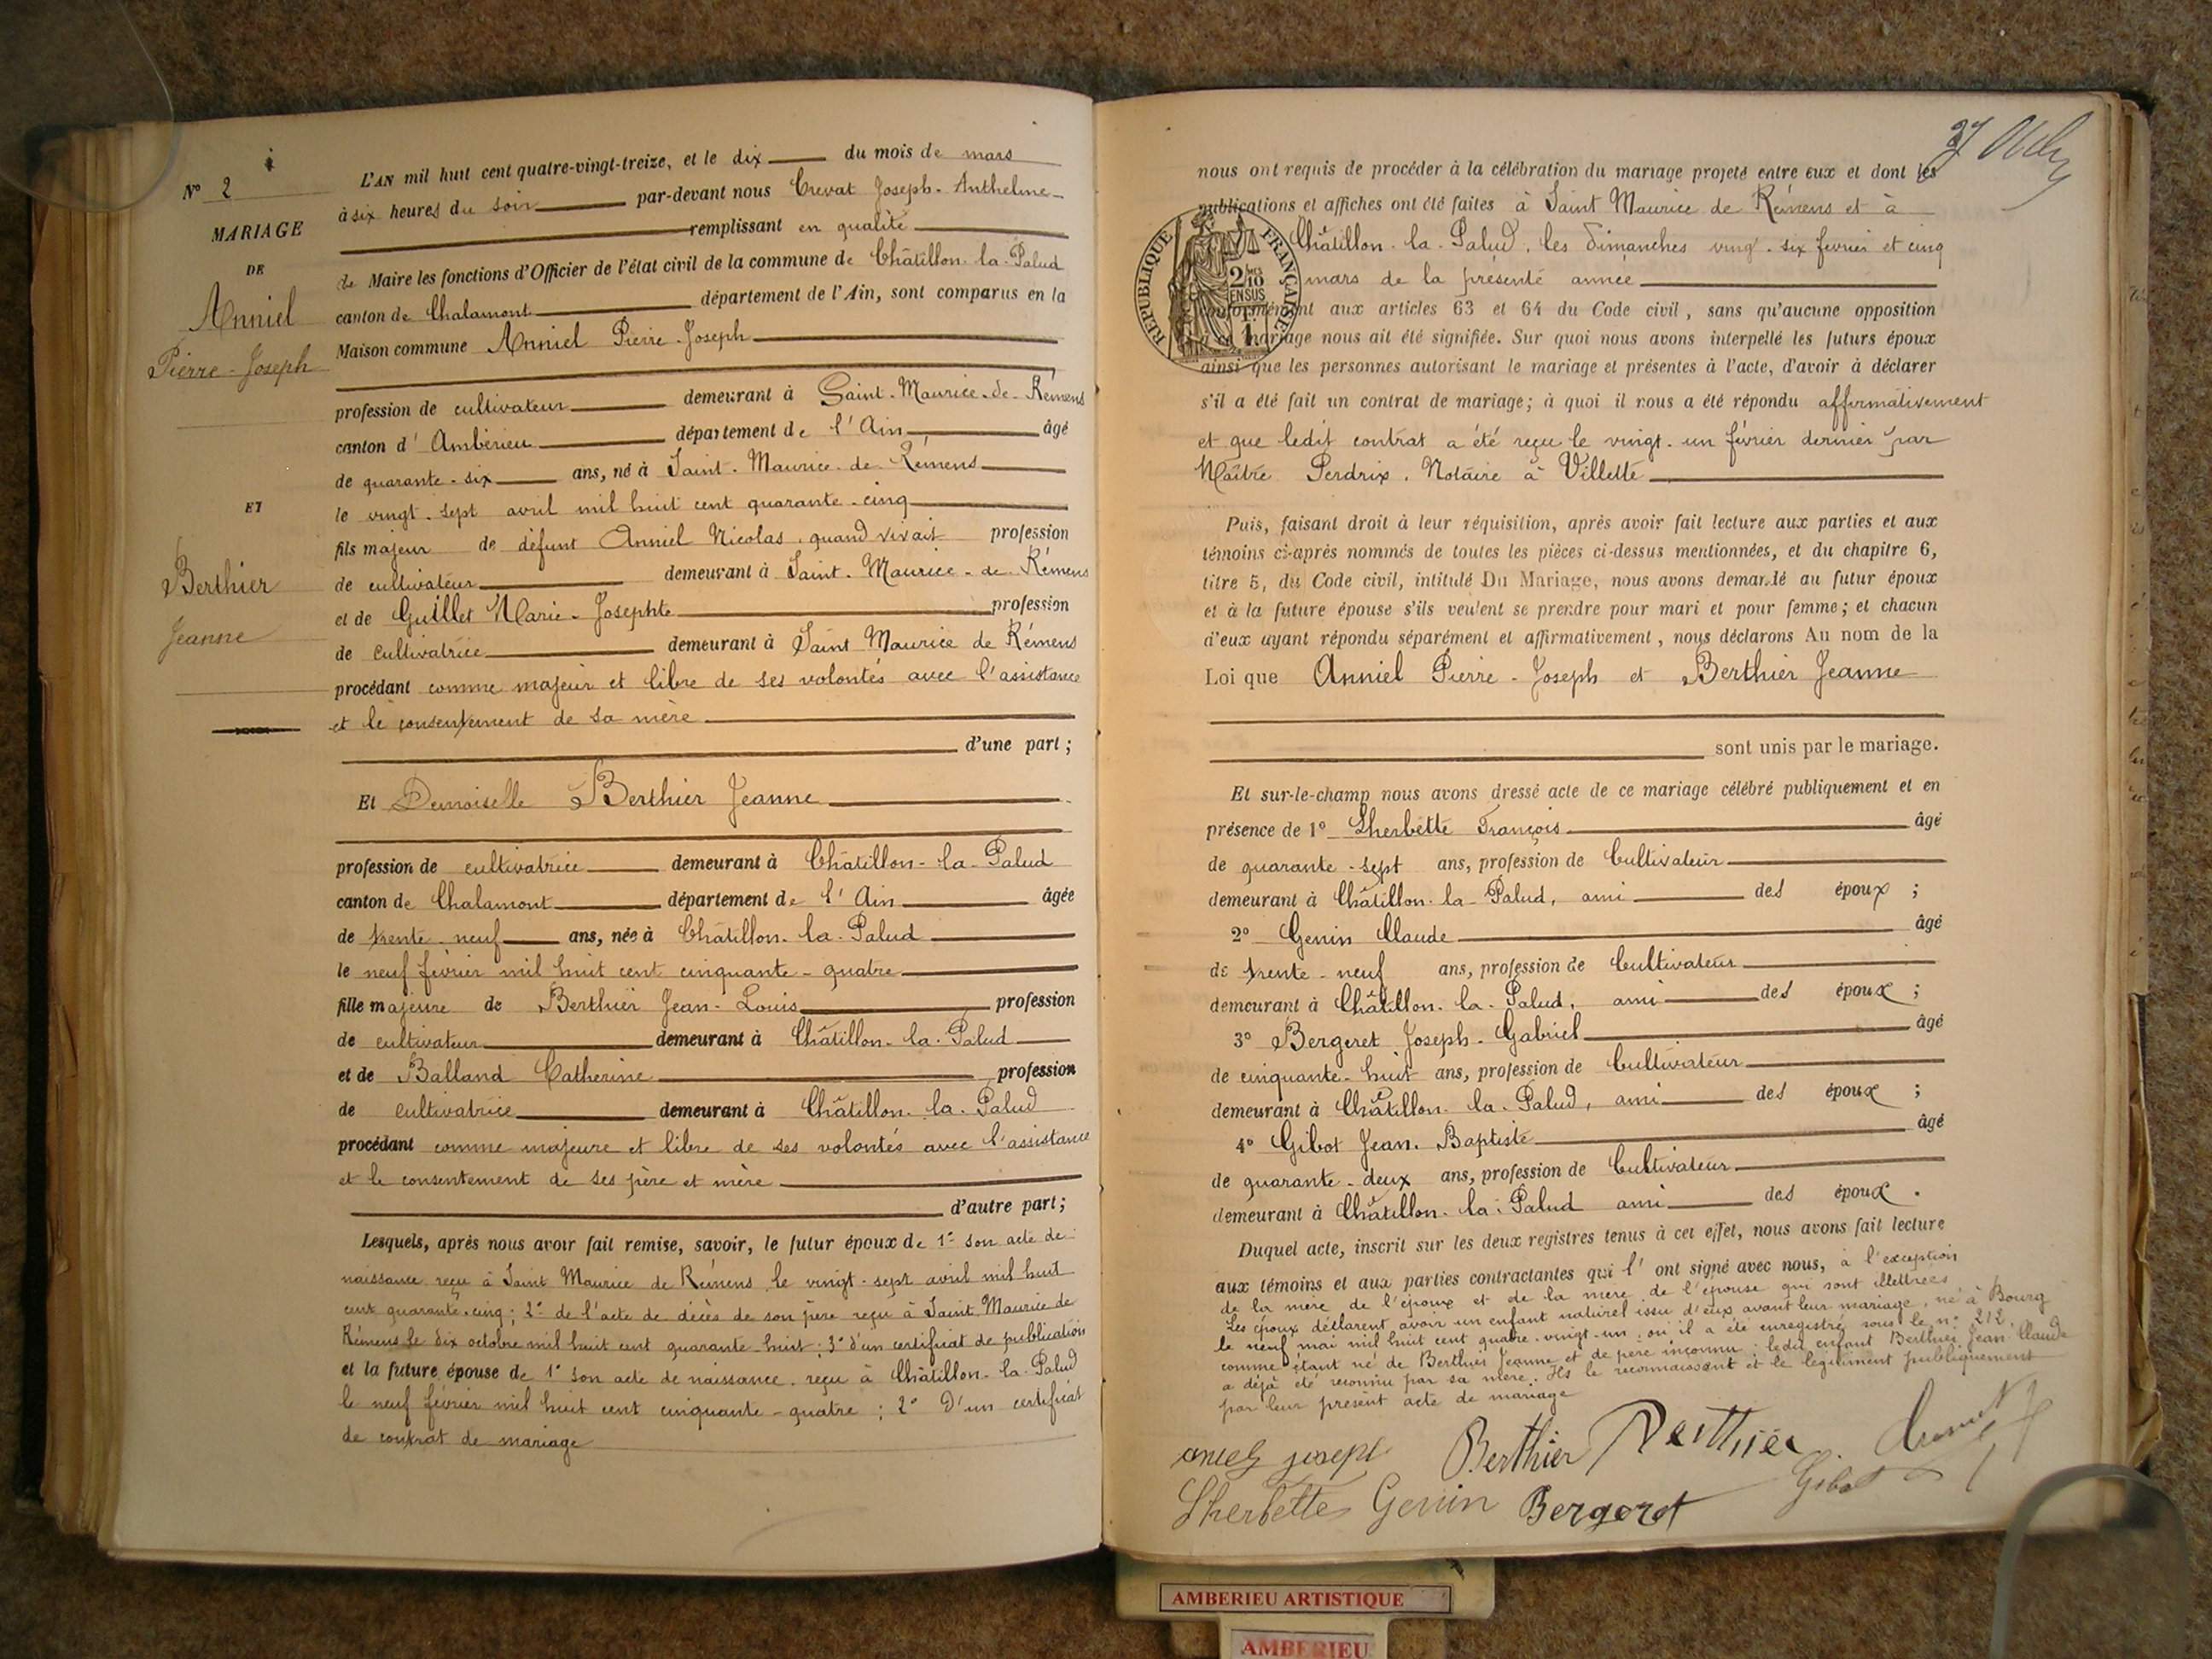 N° 2
MARIAGE
DE
Anniel
Pierre-Joseph
ET
Berthier
Jeanne
L'AN mil huit cent quatre-vingt-treize, et le dix du mois de mars
à six heures du soir par-devant nous Crevat Joseph-Anthelme
remplissant en qualité
de Maire les fonctions d'Officier de l'état civil de la commune de Châtillon-la-Palud
canton de Chalamont département de l'Ain, sont comparus en la
Maison commune Anniel Pierre-Joseph
profession de cultivateur demeurant à Saint-Maurice-de-Rémens
canton d'Ambérieu département de l'Ain âgé
de quarante-six ans, né à Saint-Maurice-de-Rémens
le vingt-sept avril mil huit cent quarante-cinq
fils majeur de défunt Anniel Nicolas, quand vivait profession
de cultivateur demeurant à Saint-Maurice-de-Rémens
et de Guillet Marie-Josephte profession
de cultivatrice demeurant à Saint Maurice de Rémens
procédant comme majeur et libre de ses volontés avec l'assistance
et le consentement de sa mère
d'une part;
Et Demoiselle Berthier Jeanne
profession de cultivatrice demeurant à Châtillon-la-Palud
canton de Chalamont département de l'Ain âgée
de trente-neuf ans, née à Châtillon-la-Palud
le neuf février mil huit cent cinquante-quatre
fille majeure de Berthier Jean-Louis profession
de cultivateur demeurant à Châtillon-la-Palud
et de Balland Catherine profession
de cultivatrice demeurant à Châtillon-la-Palud
procédant comme majeure et libre de ses volontés avec l'assistance
et le consentement de ses père et mère
d'autre part;
Lesquels, après nous avoir fait remise, savoir, le futur époux de 1° son acte de
naissance reçu à Saint Maurice de Rémens le vingt-sept avril mil huit
cent quarante-cinq; 2° de l'acte de décès de son père reçu à Saint Maurice de
Rémens le dix octobre mil huit cent quarante-huit; 3° d'un certificat de publication
et la future épouse de 1° son acte de naissance reçu à Châtillon-la-Palud
le neuf février mil huit cent cinquante-quatre; 2° D'un certificat
de contrat de mariage
27
nous ont requis de procéder à la célébration du mariage projeté entre eux et dont les
publications et affiches ont été faites à Saint Maurice de Rémens et à
Châtillon-la-Palud, les dimanches vingt-six février et cinq
mars de la présente année
conformément aux articles 63 et 64 du Code civil, sans qu'aucune opposition
à ce mariage nous ait été signifiée. Sur quoi nous avons interpellé les futurs époux
ainsi que les personnes autorisant le mariage et présentes à l'acte, d'avoir à déclarer
s'il a été fait un contrat de mariage; à quoi il nous a été répondu affirmativement
et que ledit contrat a été reçu le vingt-un février dernier par
Maître Perdrix, Notaire à Villette
RÉPUBLIQUE FRANÇAISE
2/10 EN SUS
Puis, faisant droit à leur réquisition, après avoir fait lecture aux parties et aux
témoins ci-après nommés de toutes les pièces ci-dessus mentionnées, et du chapitre 6,
titre 5, du Code civil, intitulé Du Mariage, nous avons demandé au futur époux
et à la future épouse s'ils veulent se prendre pour mari et pour femme; et chacun
d'eux ayant répondu séparément et affirmativement, nous déclarons Au nom de la
Loi que Anniel Pierre-Joseph et Berthier Jeanne
sont unis par le mariage.
Et sur-le-champ nous avons dressé acte de ce mariage célébré publiquement et en
présence de 1° Lherbette François âgé
de quarante-sept ans, profession de Cultivateur
demeurant à Châtillon-la-Palud, ami des époux;
2° Genin Claude âgé
de trente-neuf ans, profession de Cultivateur
demeurant à Châtillon-la-Palud, ami des époux;
3° Bergeret Joseph-Gabriel âgé
de cinquante-huit ans, profession de Cultivateur
demeurant à Châtillon-la-Palud, ami des époux;
4° Gibot Jean-Baptiste âgé
de quarante-deux ans, profession de Cultivateur
demeurant à Châtillon-la-Palud ami des époux.
Duquel acte, inscrit sur les deux registres tenus à cet effet, nous avons fait lecture
aux témoins et aux parties contractantes qui l'ont signé avec nous, à l'exception
de la mère de l'époux et de la mère de l'épouse qui sont illettrées
Les époux déclarent avoir un enfant naturel issu d'eux avant leur mariage, né à Bourg
le neuf mai mil huit cent quatre-vingt-un, où il a été enregistré sous le n° 212,
comme étant né de Berthier Jeanne et de père inconnu; ledit enfant Berthier Jean Claude
a déjà été reconnu par sa mère. Ils le reconnaissent et le légitiment publiquement
par leur présent acte de mariage
aniel joseph Berthier Berthier
Gibot
Lherbette Genin Bergeret
AMBERIEU ARTISTIQUE
AMBERIEU